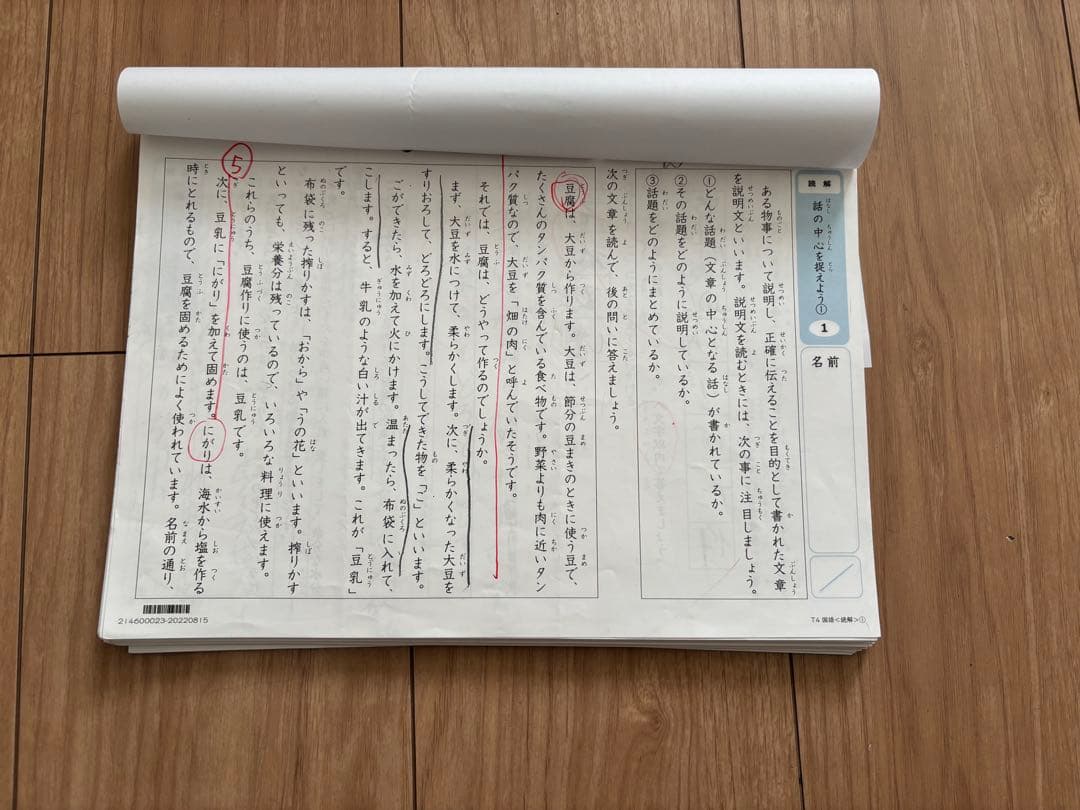 読解
話の中心を捉えよう①
1
名前
ある物事について説明し、正確に伝えることを目的として書かれた文章
を説明文といいます。説明文を読むときには、次の事に注目しましょう。
①どんな話題(文章の中心となる話)が書かれているか。
②その話題をどのように説明しているか。
③話題をどのようにまとめているか。
次の文章を読んで、後の問いに答えましょう。
豆腐は、大豆から作ります。大豆は、節分の豆まきのときに使う豆で、
たくさんのタンパク質を含んでいる食べ物です。野菜よりも肉に近いタン
パク質なので、大豆を「畑の肉」と呼んでいたそうです。
それでは、豆腐は、どうやって作るのでしょうか。
まず、大豆を水につけて、柔らかくします。次に、柔らかくなった大豆を
すりおろして、どろどろにします。こうしてできた物を「ご」といいます。
ごができたら、水を加えて火にかけます。温まったら、布袋に入れて、
こします。すると、牛乳のような白い汁が出てきます。これが「豆乳」
です。
布袋に残った搾りかすは、「おから」や「うの花」といいます。搾りかす
といっても、栄養分は残っているので、いろいろな料理に使えます。
これらのうち、豆腐作りに使うのは、豆乳です。
⑤
次に、豆乳に「にがり」を加えて固めます。にがりは、海水から塩を作る
時にとれるもので、豆腐を固めるためによく使われています。名前の通り、
214600023-20220815
T4国語<読解>①